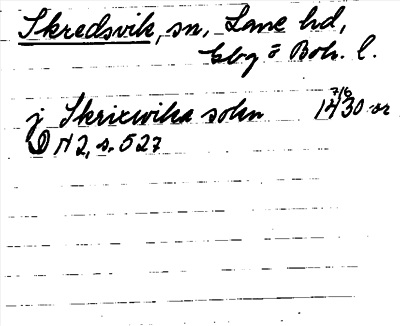 Skredsvik, sn, Lane hd,
Gbg o Boh. l.
j Skrixwika sokn 7/6 1430 or
N 2, s. 527